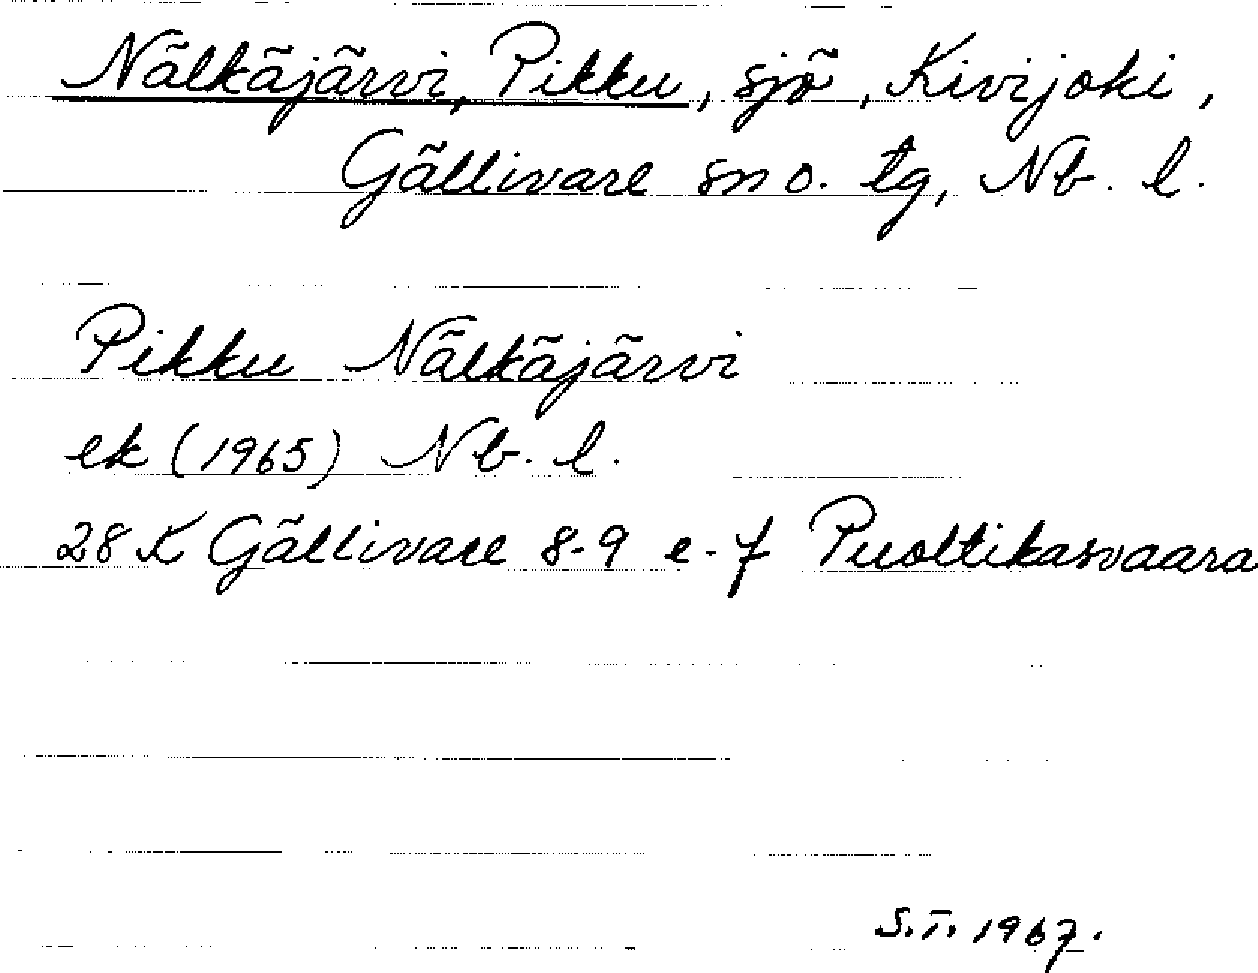 Nälkäjärvi, Pikku, sjö, Kivijoki,
Gällivare sn o. tg, Nb. l.
Pikku Nälkäjärvi
ek (1965) Nb. l.
28 K Gällivare 8-9 e-f Puoltikasvaara
S.T. 1967.